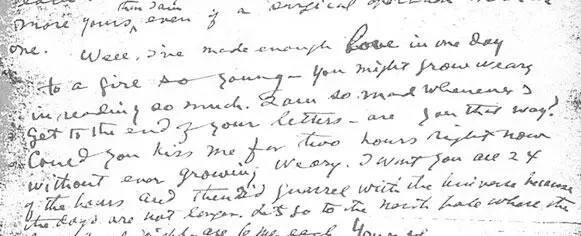 than I am
more yours, even if a surgical
one. Well, I've made enough love in one day
to a girl so young – you might grow weary
in reading so much. I am so mad whenever I
get to the end of your letters – are you that way?
Could you kiss me for two hours right now
without ever growing weary. I want you all 24
of the hours and then I'd quarrel with the universe because
the days are not longer. Let's go to the north pole where the
are